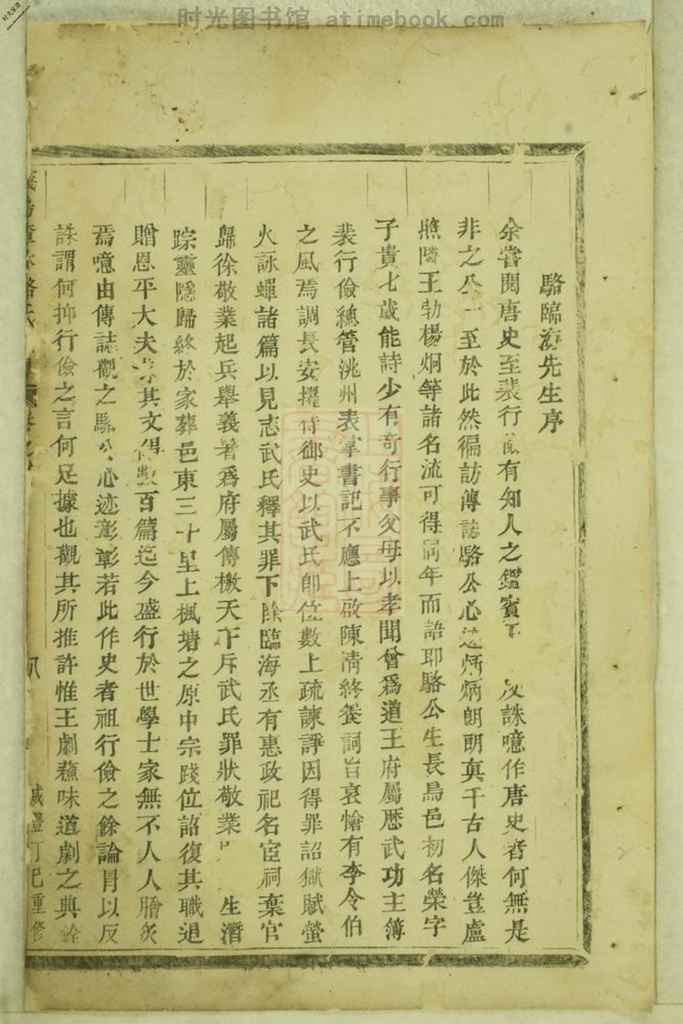 时光图书馆 atimebook.com
駱臨海先生序
余嘗閱唐史至裴行儉有知人之鑑賓王 反誅噫作唐史者何無是
非之公一至於此然徧訪傳誌駱公心迹炳炳朗朗真千古人傑豈盧
照隣王勃楊炯等諸名流可得同年而語耶駱公生長烏邑初名榮字
子貴七歲能詩少有奇行事父母以孝聞曾爲道王府屬歷武功主簿
裴行儉總管洮州表掌書記不應上啟陳情終養詞旨哀愴有李令伯
之風焉調長安擢侍御史以武氏即位數上疏諫諍因得罪詔獄賦螢
火詠蟬諸篇以見志武氏釋其罪下除臨海丞有惠政祀名宦祠棄官
歸徐敬業起兵舉義署爲府屬傳檄天下斥武氏罪狀敬業 生潛
踪靈隱歸終於家葬邑東三十里上楓塘之原中宗踐位詔復其職追
贈恩平大夫 其文得數百篇迄今盛行於世學士家無不人人膾炙
焉噫由傳誌觀之駱公心迹彰彰若此作史者祖行儉之餘論肙以反
誅謂何抑行儉之言何足據也觀其所推許惟王劇蘇味道劇之典銓
八
咸豐丁巳重修